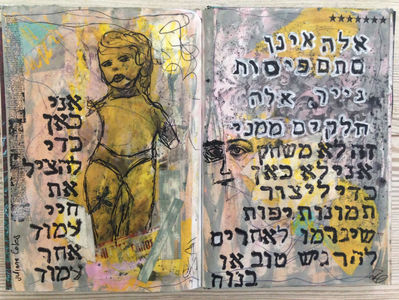 אלה אינן
סתם פיסות
נייר. אלה
חלקים ממני
זה לא משחק
אני לא כאן
כדי ליצור
תמונות יפות
שיגרמו לאחרים
להרגיש טוב או
בנוח
אני
כאן
כדי
להציל
את
חיי
עמוד
אחר
עמוד